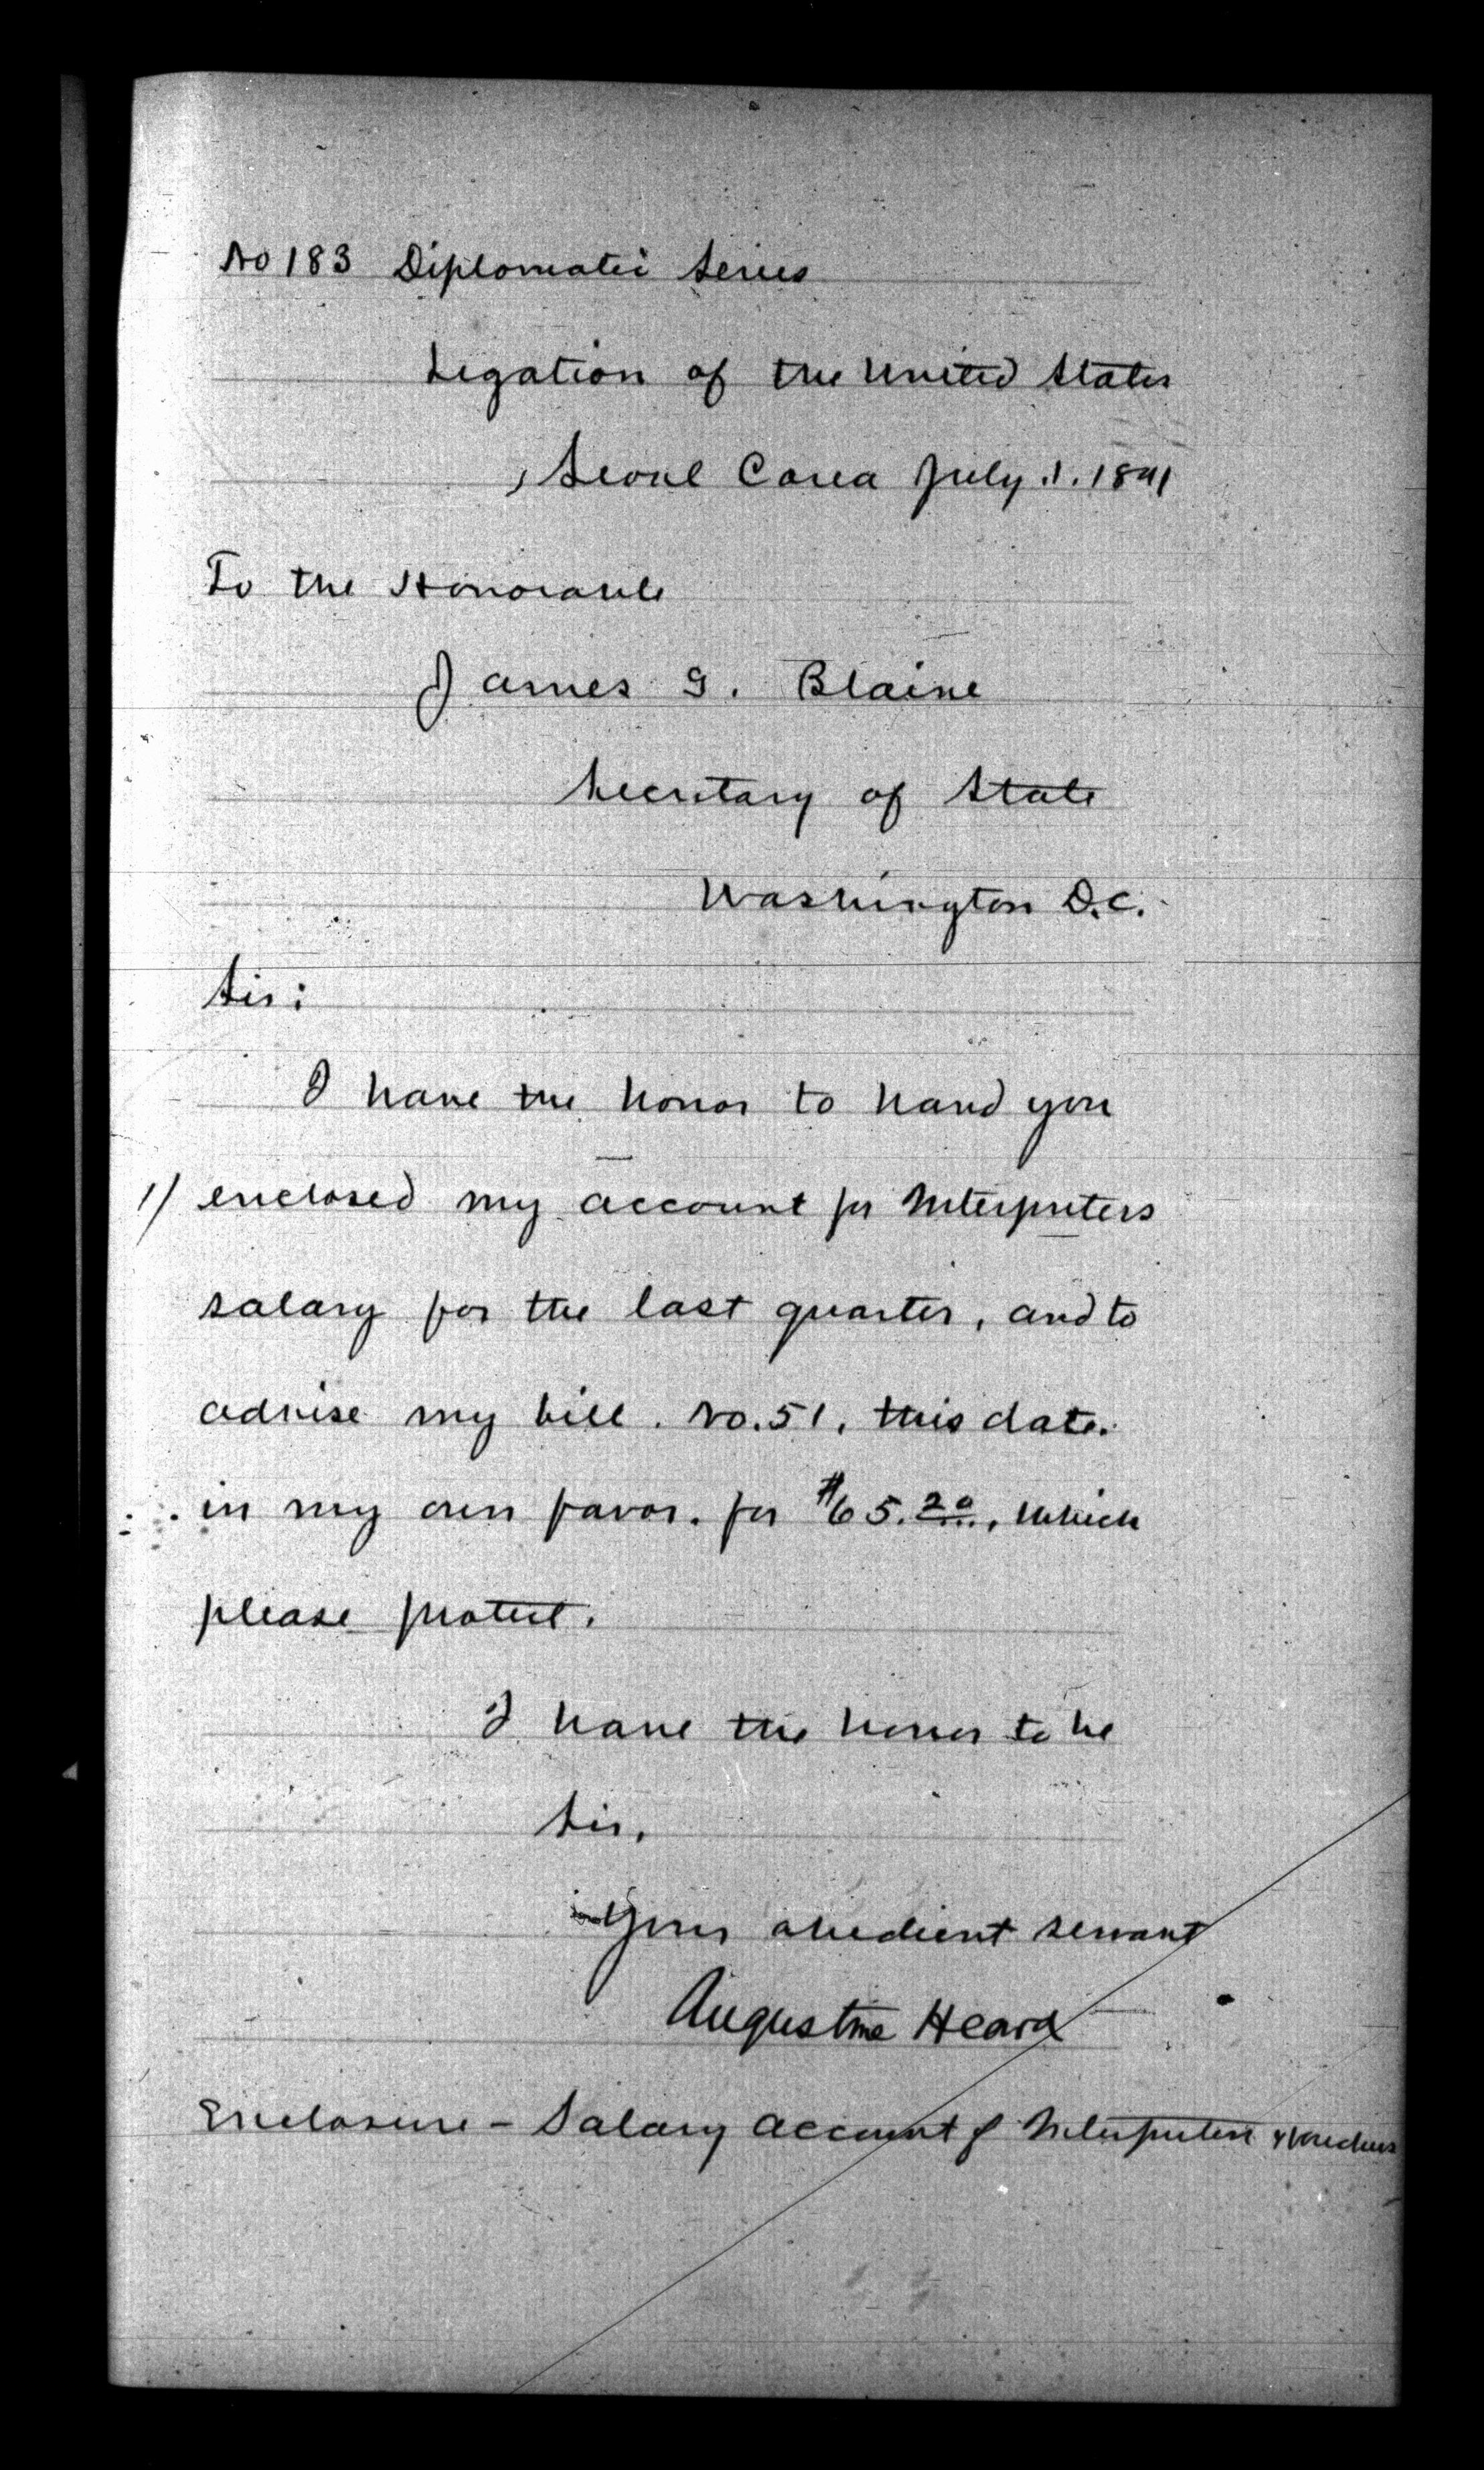 No 183 Diplomatic Series
Legation of the United States
Seoul Corea July 1. 1891
To the Honorable
James G. Blaine
Secretary of State
Washington D.C.
Sir:
I have the honor to hand you
1/ enclosed my account for Interpreters
salary for the last quarter, and to
advise my bill. No. 51, this date.
in my own favor. for $65.20, which
please protect.
I have the honor to be
Sir,
Your obedient servant
Augustine Heard
Enclosure - Salary account of Interpreters & Vouchers